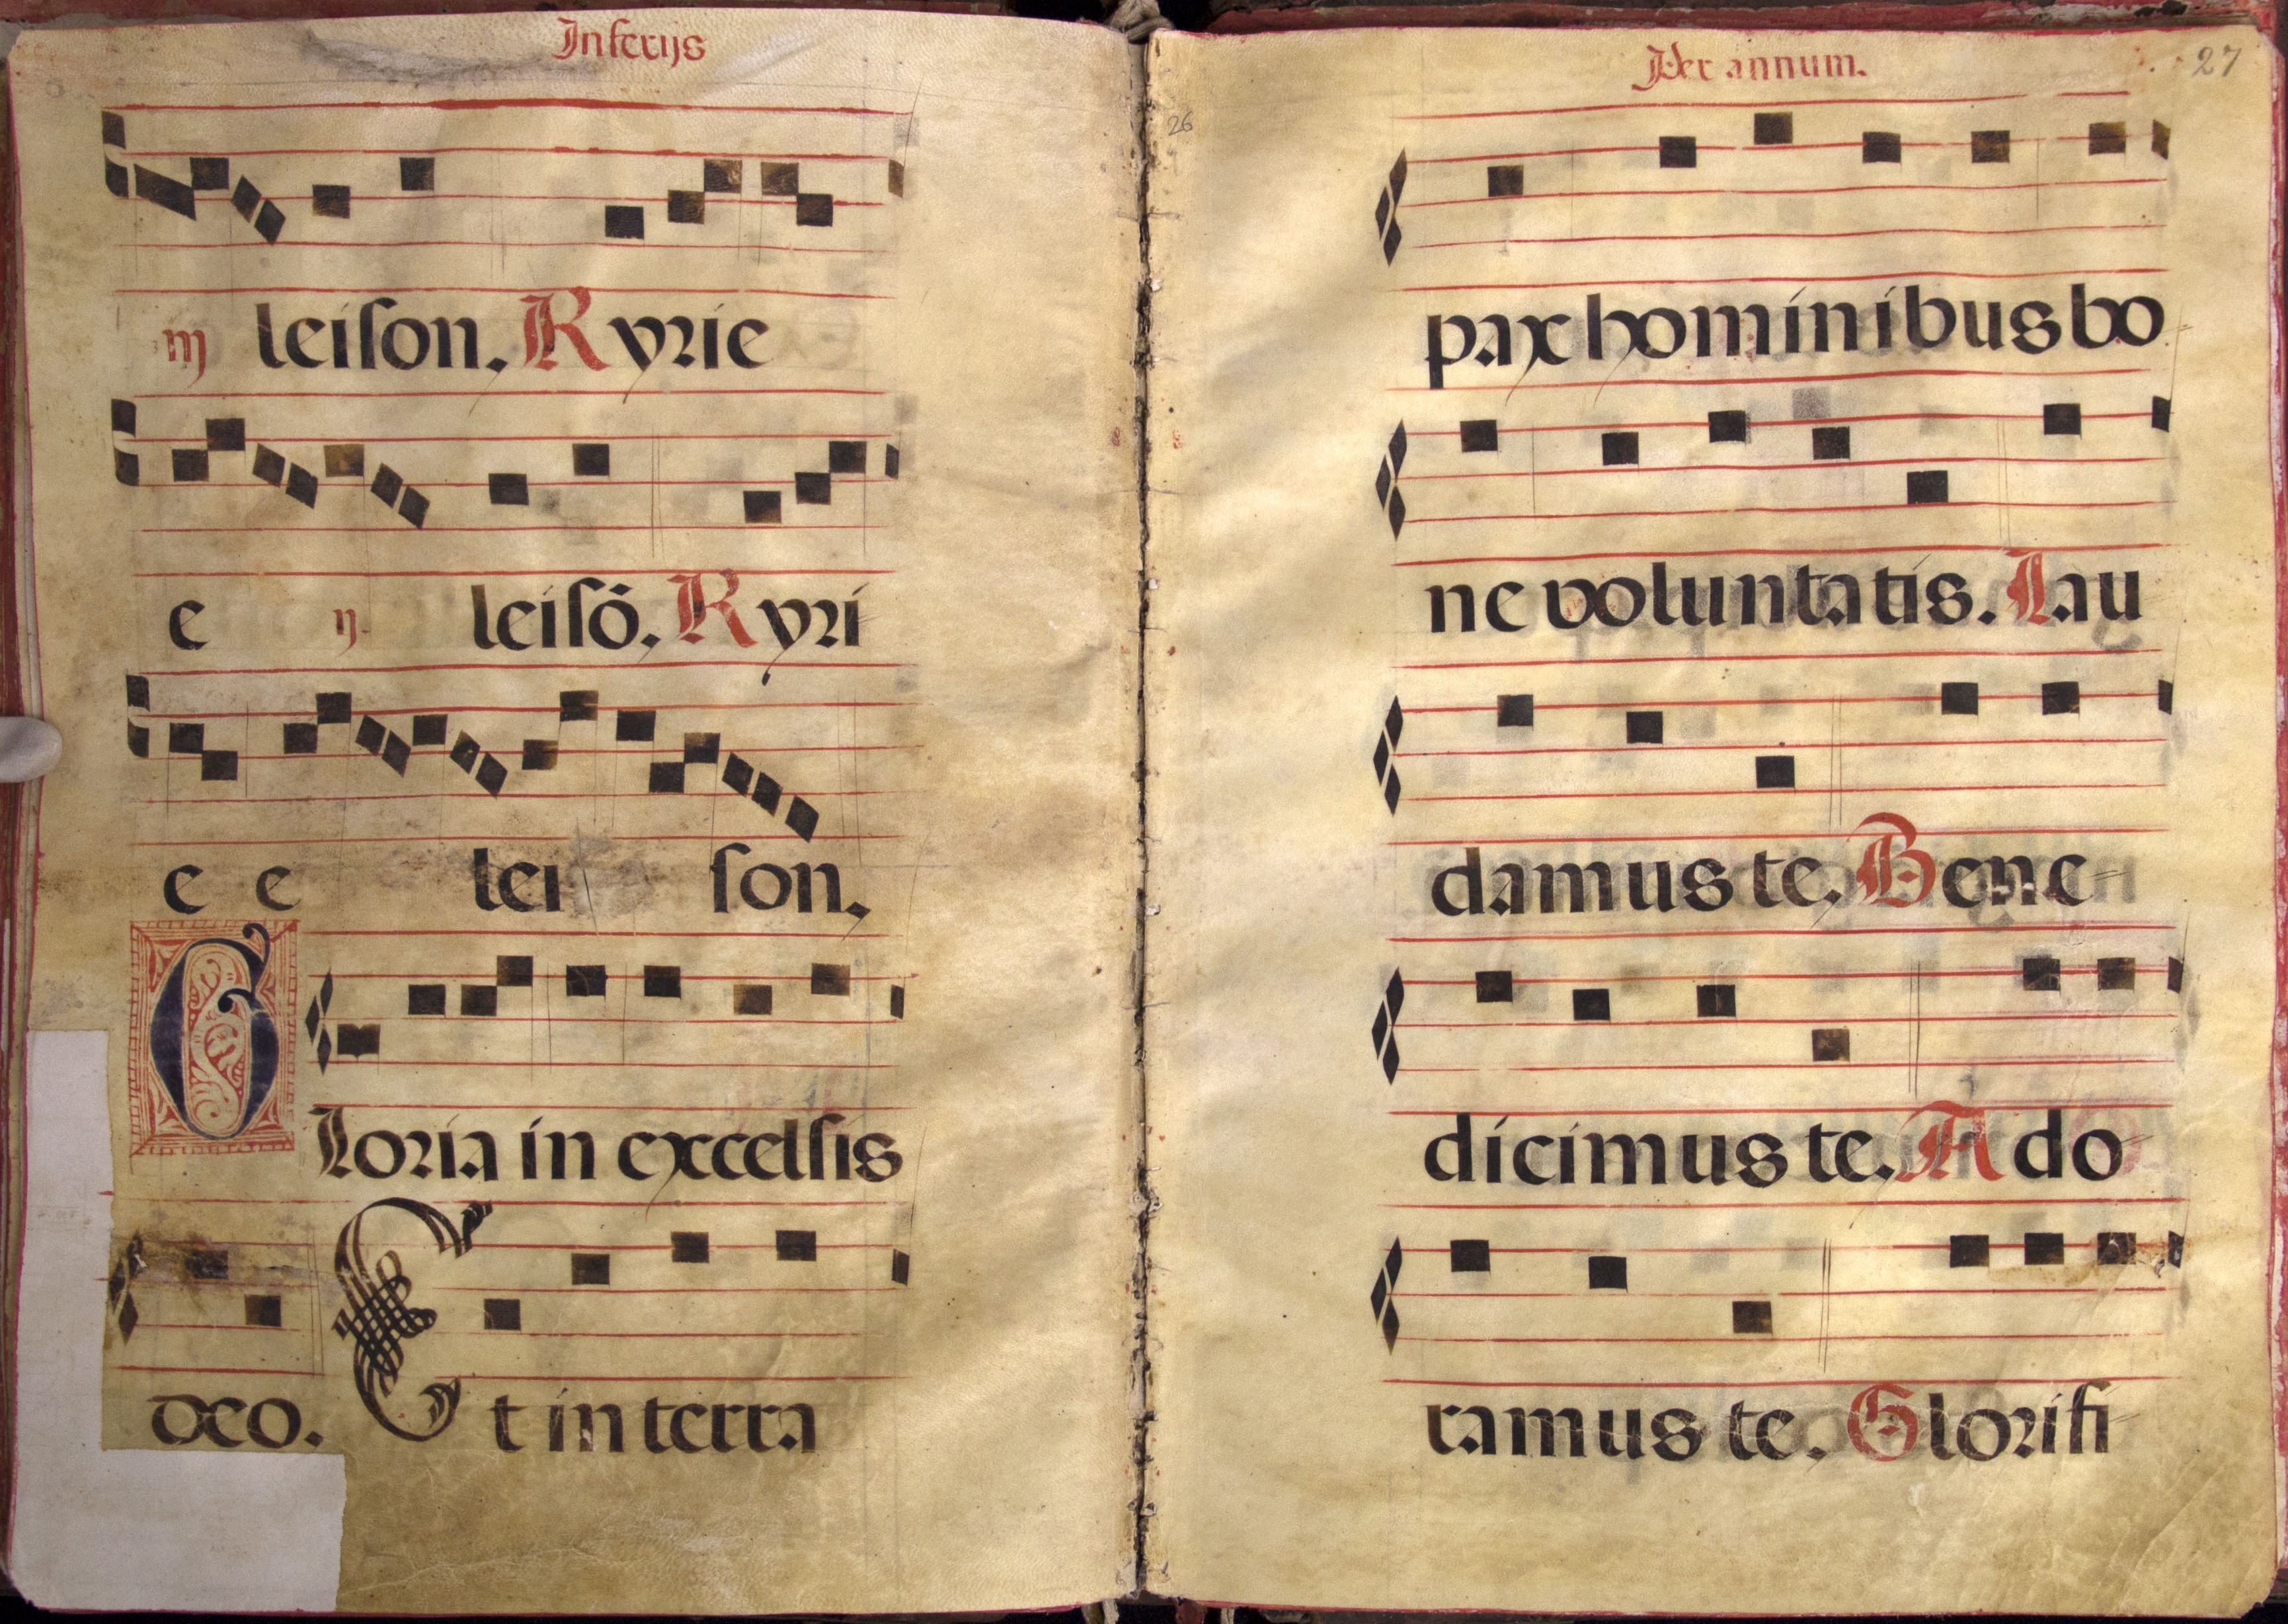 In ferijs
iij leiſon. Kyrie
e ij. leiſō. Kyri
e e lei ſon.
Gloria in excelſis
deo. Et in terra
Per annum.
27
26
pax hominibus bo
ne voluntatis. Lau
damus te. Bene-
dicimus te. Ado
ramus te. Glorifi